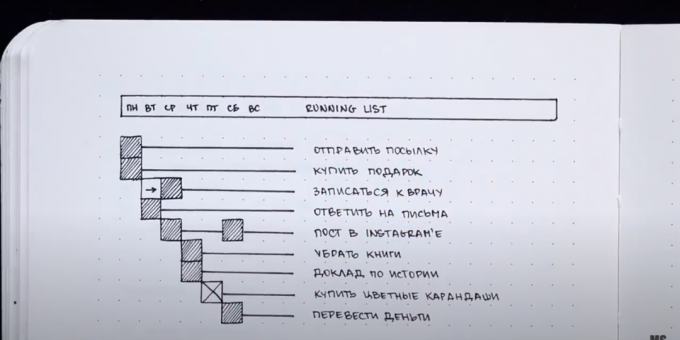 ПН ВТ СР ЧТ ПТ СБ ВС RUNNING LIST
ОТПРАВИТЬ ПОСЫЛКУ
КУПИТЬ ПОДАРОК
ЗАПИСАТЬСЯ К ВРАЧУ
ОТВЕТИТЬ НА ПИСЬМА
ПОСТ В INSTAGRAM'Е
УБРАТЬ КНИГИ
ДОКЛАД ПО ИСТОРИИ
КУПИТЬ ЦВЕТНЫЕ КАРАНДАШИ
ПЕРЕВЕСТИ ДЕНЬГИ